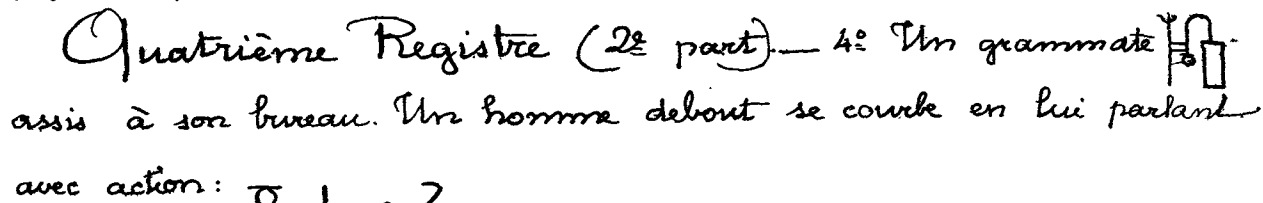 Quatrième Registre (2e part). — 4o Un grammate
assis à son bureau. Un homme debout se courbe en lui parlant
avec action: